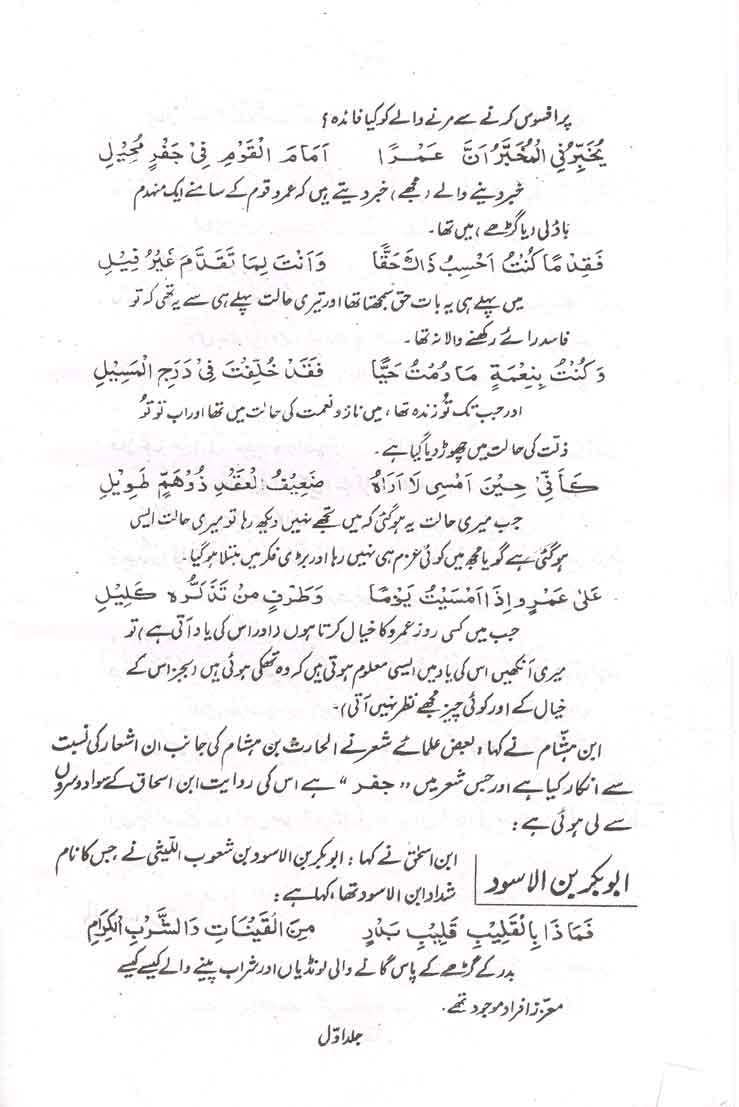 پر افسوس کرنے سے مرنے والے کو کیا فائدہ؟
يُخَبِّرُنِي الْمُخَبِّرُ اَنَّ عَمْرًا اَمَامَ الْقَوْمِ فِيْ جَفْرٍ مُحِيْلِ
خبر دینے والے (مجھے) خبر دیتے ہیں کہ عمرو قوم کے سامنے ایک منہدم
باؤلی (یا گڑھے) میں تھا۔
فَقِدْ مًا كُنْتُ اَحْسِبُ ذَاكَ حَقًّا وَاَنْتَ لِمَا تَقَدَّمَ غَيْرُ فِيْلِ
میں پہلے ہی یہ بات حق سمجھتا تھا اور تیری حالت پہلے ہی سے یہ تھی کہ تو
فاسد رائے رکھنے والا نہ تھا۔
وَكُنْتُ بِنِعْمَةٍ مَا دُمْتُ حَيًّا فَقَدْ خُلِّفْتَ فِيْ دَرَجِ الْمَسِيْلِ
اور جب تک تُو زندہ تھا، میں ناز و نعمت کی حالت میں تھا اور اب تو تُو
ذلت کی حالت میں چھوڑ دیا گیا ہے۔
كَاَنِّيْ حِيْنَ اَمْسِيْ لَا اَرَاهُ ضَعِيْفُ الْعَقْدِ ذُوْهَمٍّ طَوِيْلِ
جب میری حالت یہ ہو گئی کہ میں تجھے نہیں دیکھ رہا تو میری حالت ایسی
ہو گئی ہے گویا مجھ میں کوئی عزم ہی نہیں رہا اور بڑی فکر میں مبتلا ہو گیا۔
عَلٰى عَمْرٍو اِذَا اَمْسَيْتُ يَوْمًا وَطَرْفٍ مِنْ تَذَكُّرِهٖ كَلِيْلِ
جب میں کسی روز عمرو کا خیال کرتا ہوں (اور اس کی یاد آتی ہے) تو
میری آنکھیں اس کی یاد میں ایسی معلوم ہوتی ہیں کہ وہ تھکی ہوئی ہیں (بجز اس کے
خیال کے اور کوئی چیز مجھے نظر نہیں آتی)۔
ابن ہشام نے کہا: بعض علمائے شعر نے الحارث بن ہشام کی جانب ان اشعار کی نسبت
سے انکار کیا ہے اور جس شعر میں "جفر" ہے اس کی روایت ابن اسحاق کے سوا دوسروں
سے لی ہوئی ہے:
ابوبکر بن الاسود
ابن اسحٰق نے کہا: ابوبکر بن الاسود بن شعوب اللیثی نے، جس کا نام
شداد ابن الاسود تھا، کہا ہے:
فَمَاذَا بِالْقَلِيْبِ قَلِيْبِ بَدْرٍ مِنَ الْقَيْنَاتِ وَالشَّرْبِ الْكِرَامِ
بدر کے گڑھے کے پاس گانے والی لونڈیاں اور شراب پینے والے کیسے کیسے
معزز افراد موجود تھے۔
جلد اوّل